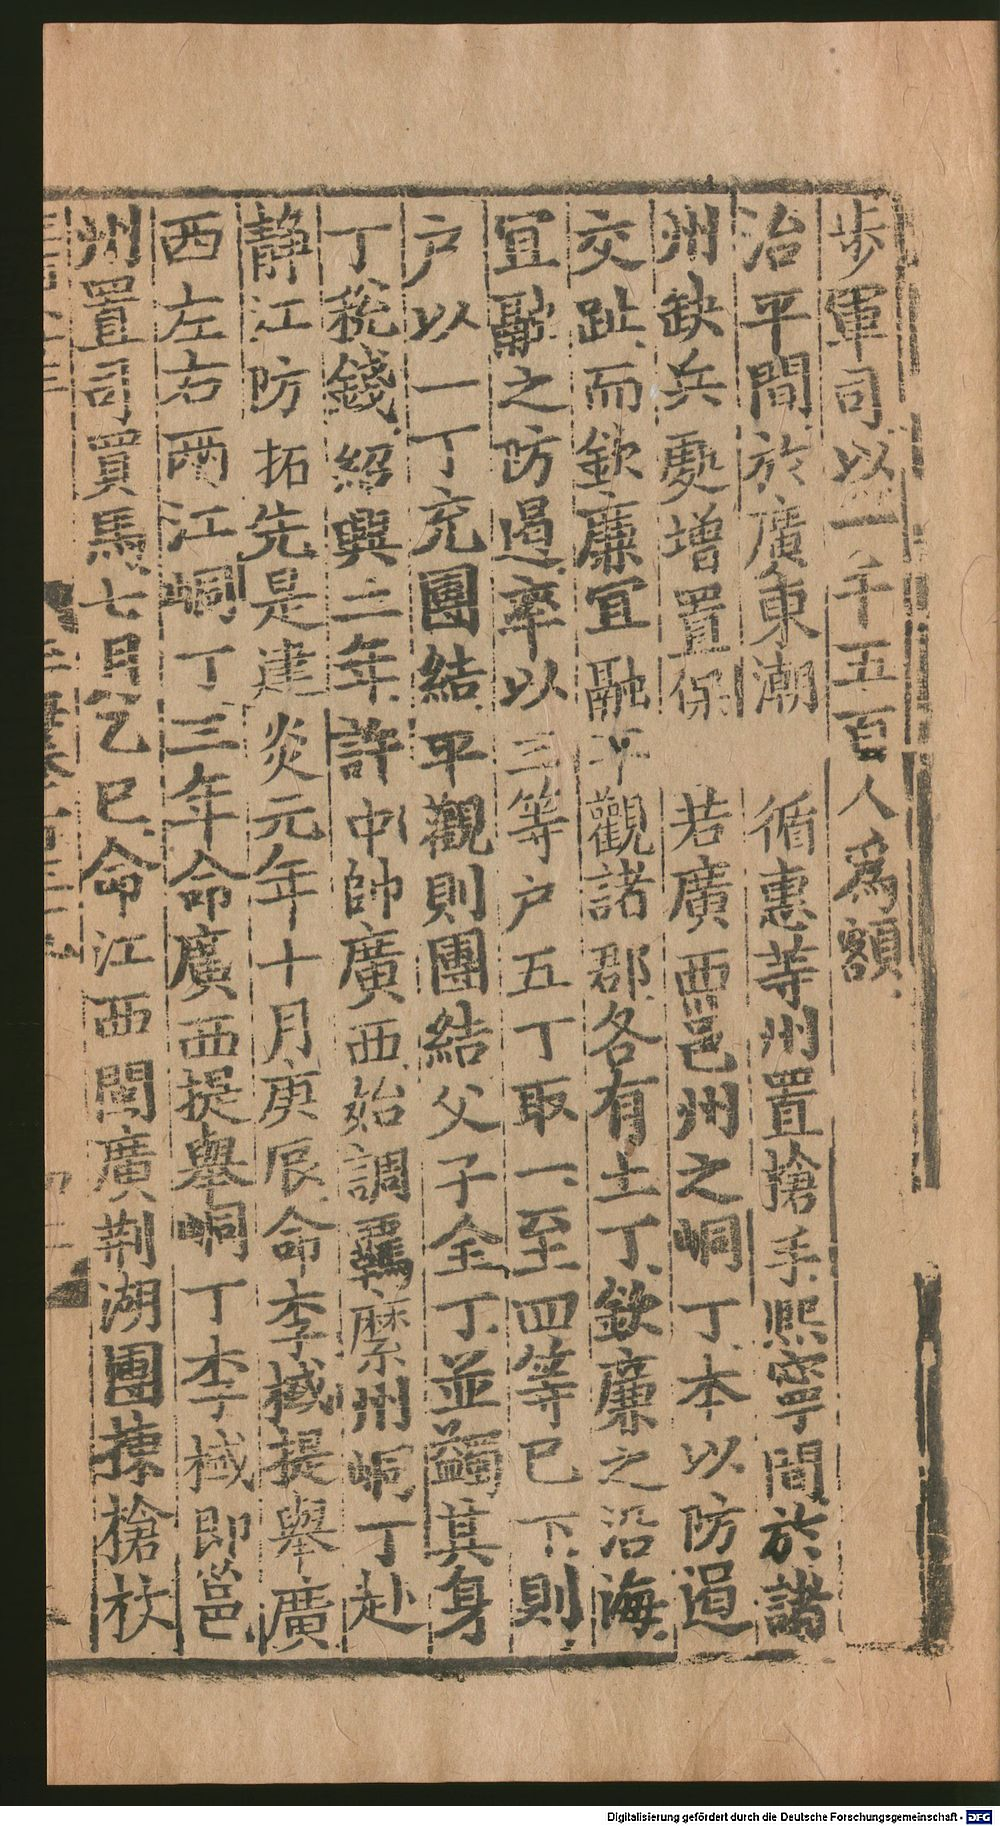 步軍司以一千五百人爲額
治平間於廣東潮循惠等州置搶手熙寧間於諸
州缺兵處增置保若廣西邕州之峒丁本以防遏
交趾而欽廉宜融平觀諸郡各有土丁欽廉之沿海
宜融之防遏率以三等户五丁取一至四等已下則
户以一丁充團結平觀則團結父子全丁並蠲其身
丁稅錢紹興二年許中帥廣西始調羈縻州峒丁赴
靜江防拓先是建炎元年十月庚辰命李棫提舉廣
西左右兩江峒丁三年命廣西提舉峒丁李棫即邕
州置司買馬七月乙巳命江西閩廣荆湖團搸槍杖
Digitalisierung gefördert durch die Deutsche Forschungsgemeinschaft - DFG